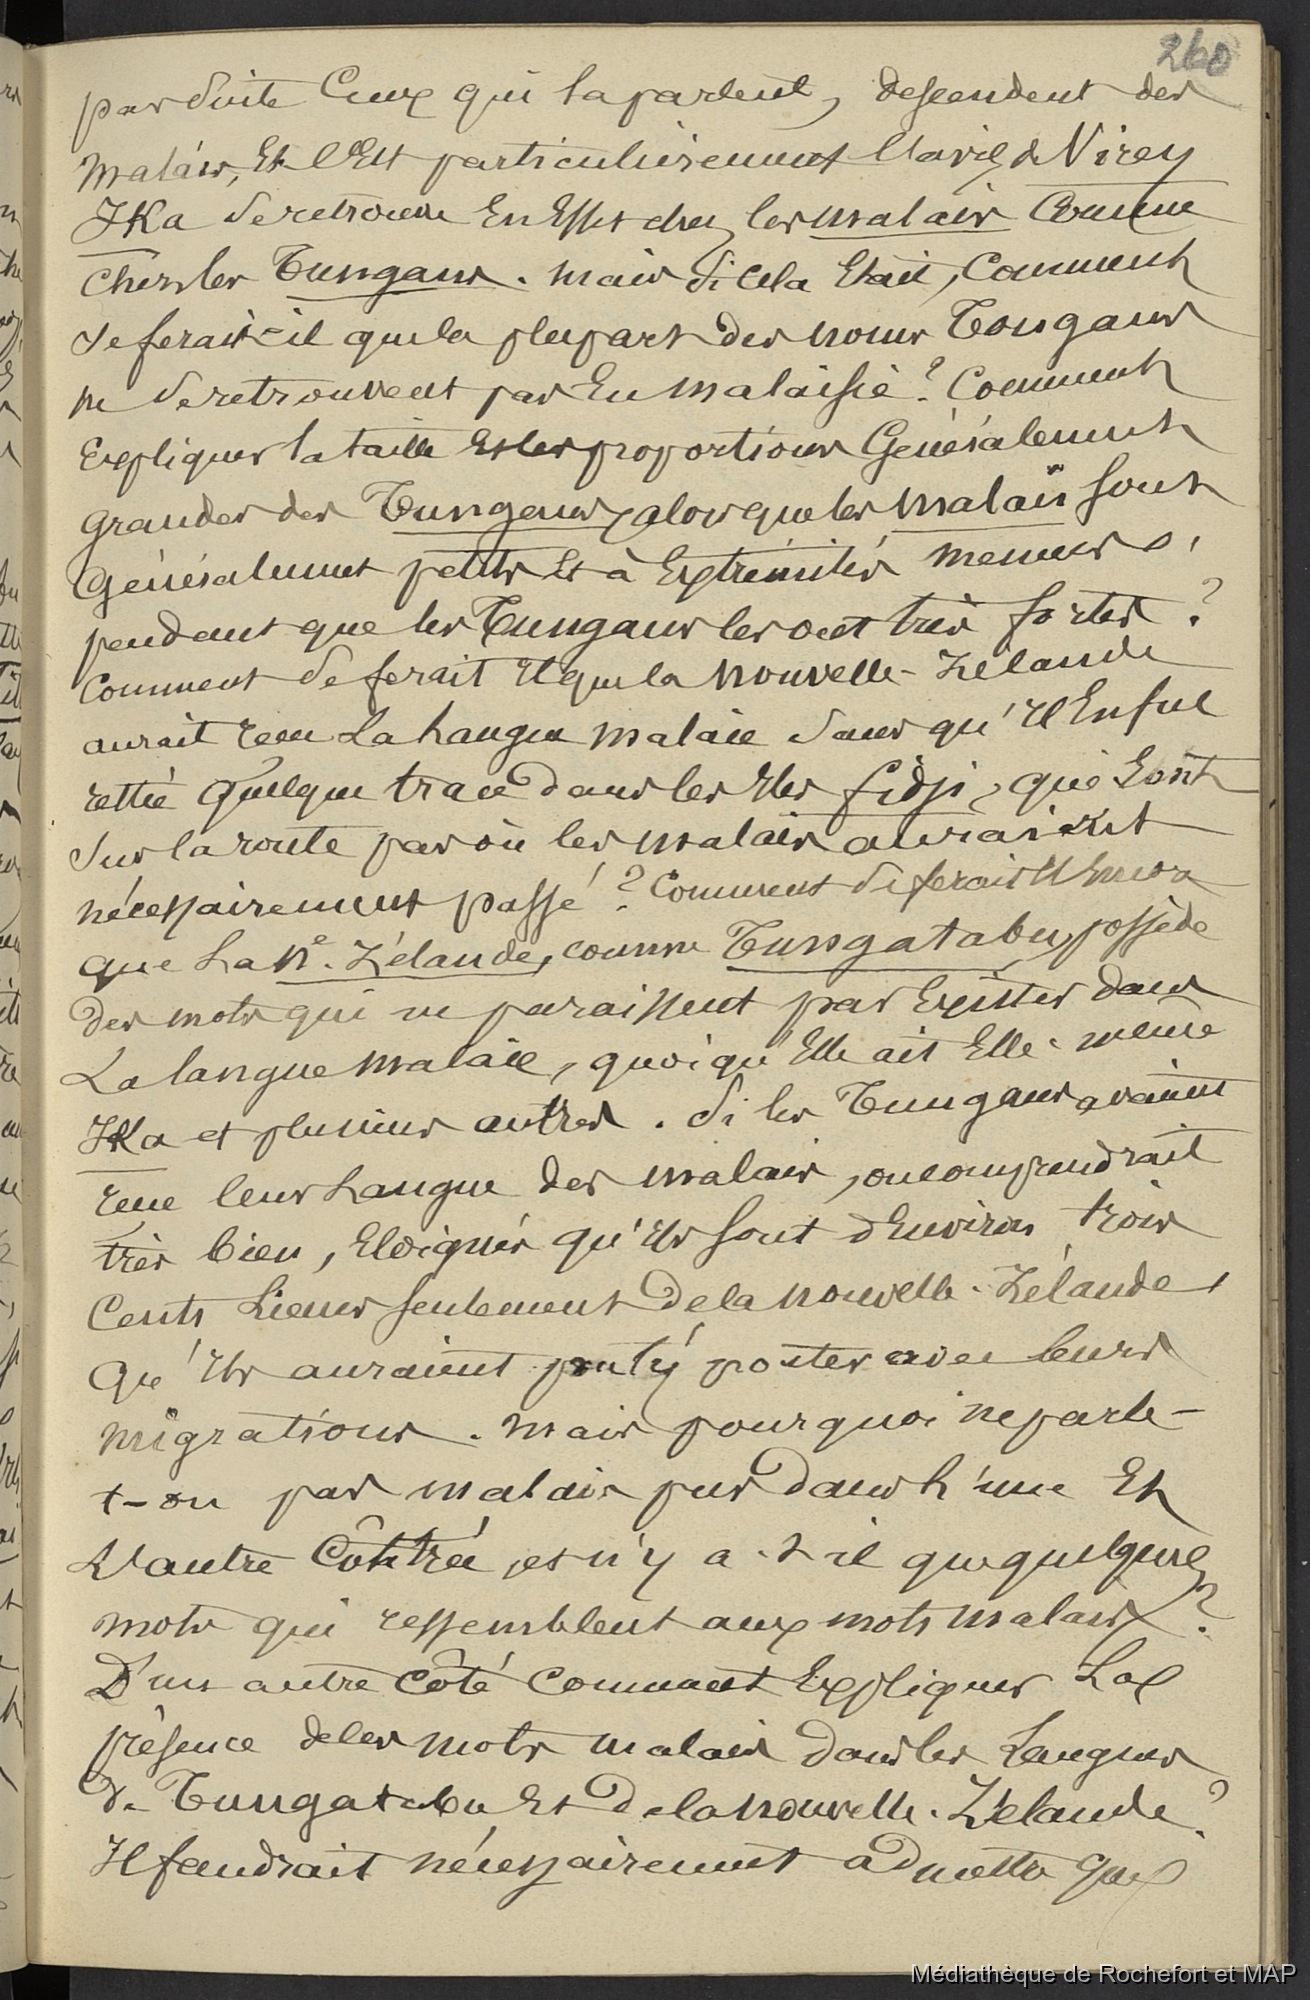 260
par suite Ceux qui la parlent, descendent des
malais, Et C'Est particulièrement l'avis de Virey
Ika se retrouve En Effet chez les malais Comme
Chez les Tungans. mais si Cela Etait, Comment
se ferait-il que la plupart des noms Tongans
ne se retrouvent pas En malaisie? Comment
Expliquer la taille Et les proportions Généralement
grandes des Tungans, alors que les malais sont
Généralement petits Et à Extrémités menues,
pendant que les Tungans les ont très fortes?
Comment se ferait Il que la nouvelle-Zélande
aurait recu La Langue malaie sans qu'Il En fut
resté quelque trace dans les Iles fidji, qui sont
sur la route par où les malais auraient
nécessairement passé? Comment se ferait Il
que La Nle. Zélande, comme Tungatabu, possède
des mots qui ne paraissent pas Exister dans
La langue malaie, quoiqu'Elle ait Elle-même
Ika et plusieurs autres. Si les Tungans avaient
recu leur Langue des malais, on comprendrait
très bien, Eloignés qu'Ils sont d'Environ trois
Cents Lieues seulement de la nouvelle-Zélande,
qu'Ils auraient pu l'y porter avec leurs
migrations. mais pourquoi ne parle-
t-on pas malais pur dans L'une Et
L'autre Contrée, et n'y a-t-il que quelques
mots qui ressemblent aux mots malais?
D'un autre côté comment Expliquer La
présence de les mots malais dans les Langues
de Tungatabu Et de la nouvelle-Zélande?
Il faudrait nécessairement admettre que
Médiathèque de Rochefort et MAP